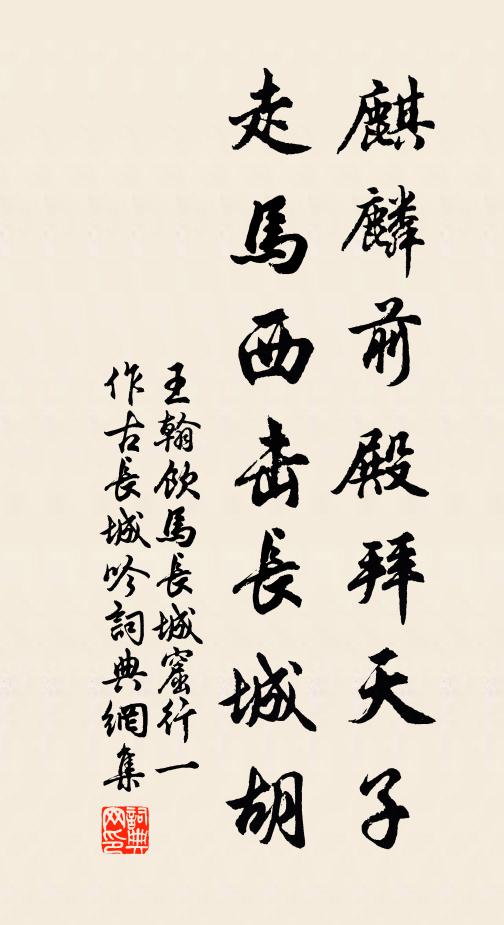 麒麟前殿拜天子
走馬西击長城胡
王翰飲馬長城窟行一
作古長城吟詞典網集
詞典
网印